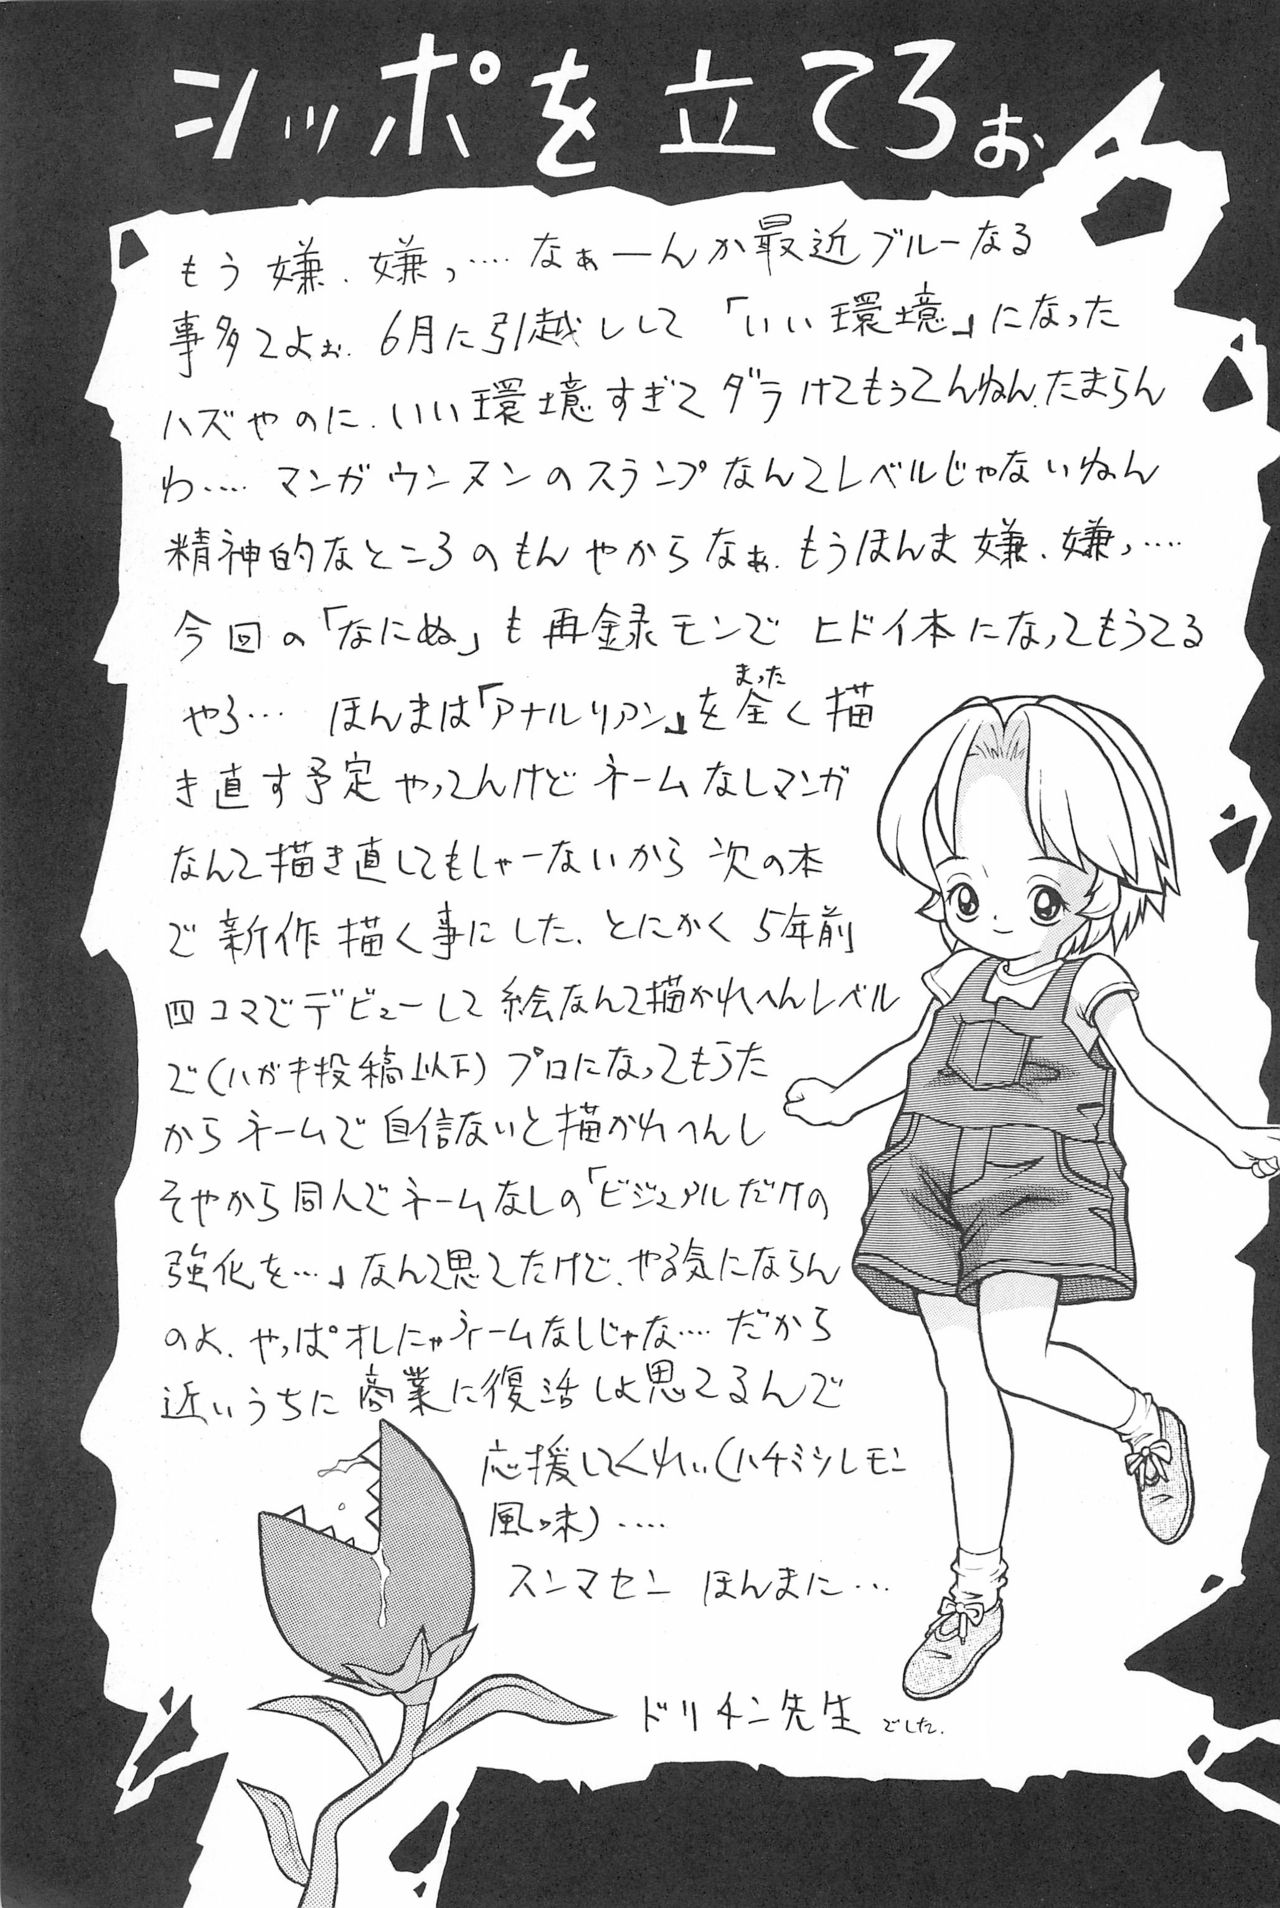 シッポを立てろぉ
もう嫌、嫌っ‥‥なぁーんか最近ブルーなる
事多てよぉ、6月に引越しして「いい環境」になった
ハズやのに、いい環境すぎてダラけてもうてんねん、たまらん
わ‥‥マンガウンヌンのスランプなんてレベルじゃないねん
精神的なところのもんやからなぁ、もうほんま嫌、嫌っ‥‥
今回の「なにぬ」も再録モンでヒドイ本になってもうてる
やろ… ほんまは「アナルリアン」を全く描
まった
き直す予定やってんけどネームなしマンガ
なんて描き直してもしゃーないから次の本
で新作描く事にした、とにかく5年前
四コマでデビューして絵なんて描かれへんレベル
で(ハガキ投稿以下)プロになってもうた
からネームで自信ないと描かれへんし
そやから同人でネームなしの「ビジュアルだけの
強化を…」なんて思てたけど、やる気にならん
のよ、やっぱオレにゃネームなしじゃな‥‥だから
近いうちに商業に復活しよ思てるんで
応援してくれぃ(ハチミツレモン
風味)‥‥
スンマセン ほんまに…
ドリチン先生 でした.